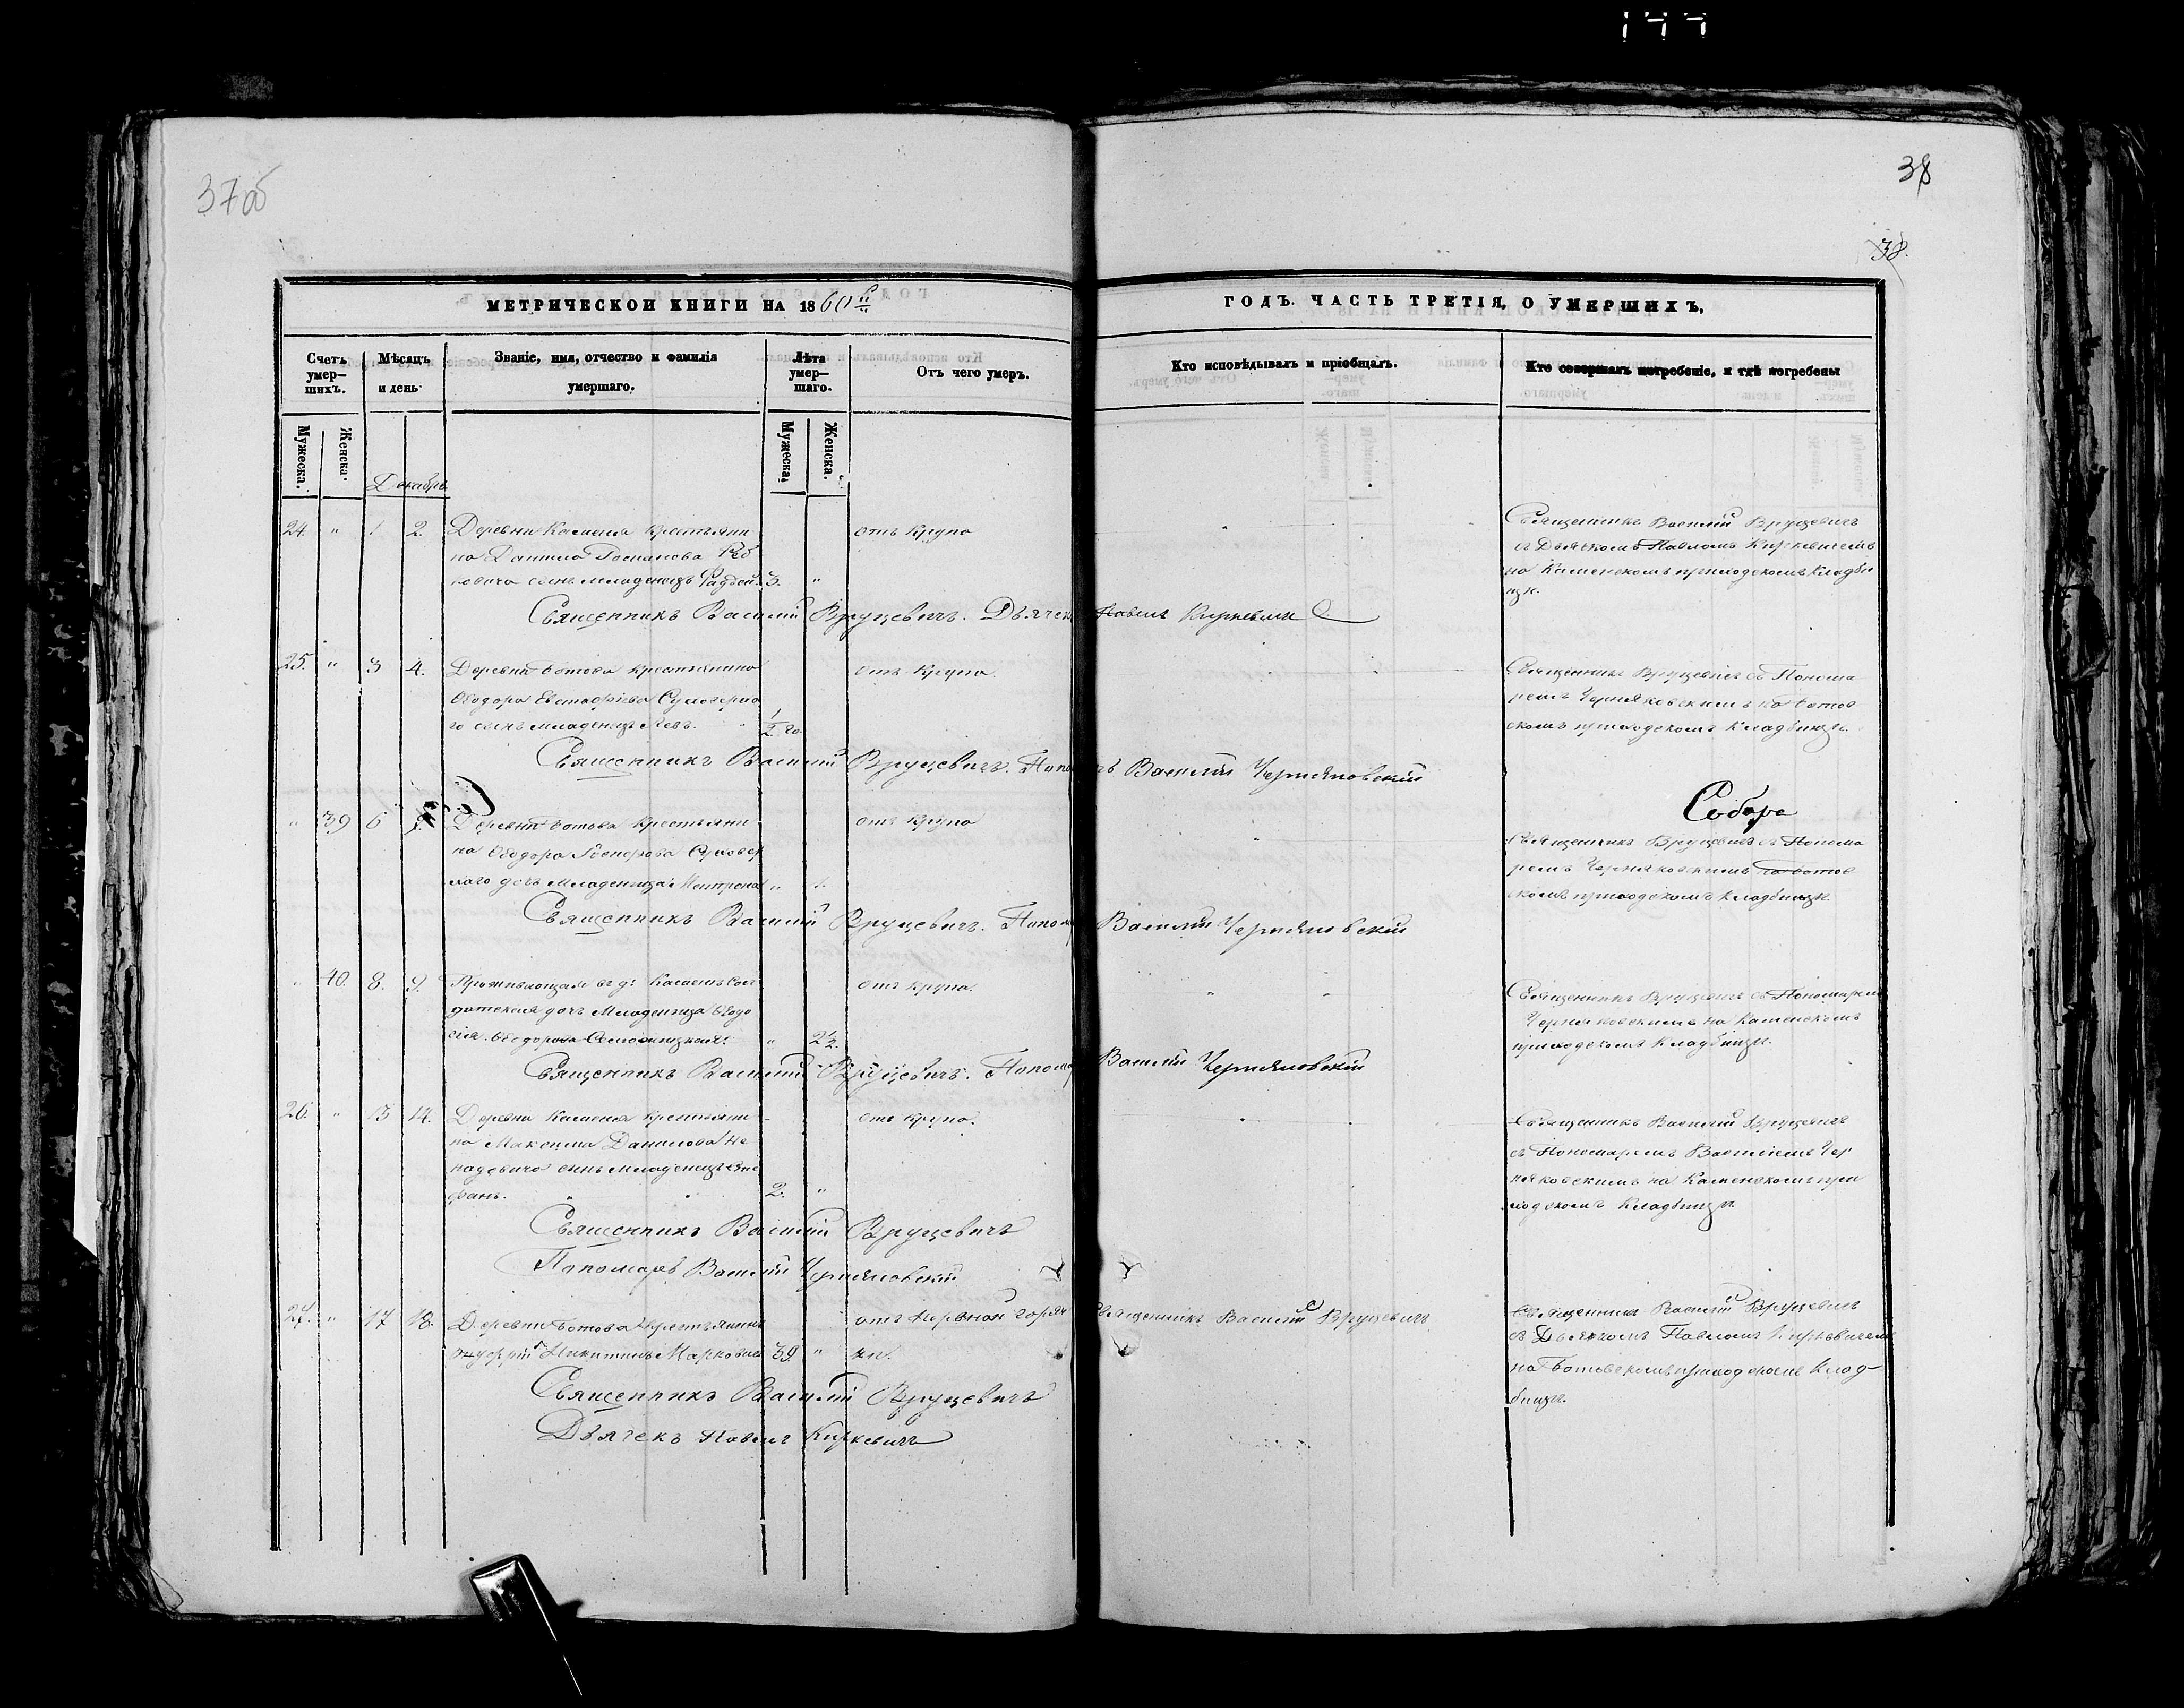 177
37об
38
38.
МЕТРИЧЕСКОЙ КНИГИ НА 1860й
ГОДЪ. ЧАСТЬ ТРЕТІЯ, О УМЕРШИХЪ.
Счетъ умер- шихъ.
Мѣсяцъ и день.
Званіе, имя, отчество и фамилія умершаго.
Лѣта умер- шаго.
Отъ чего умеръ.
Кто исповѣдывалъ и пріобщалъ.
Кто совершалъ погребеніе, и гдѣ погребены
Мужеска.
Женска.
Мужеска.
Женска.
Декабрь
24. " 1 2. Деревни Каменя крестьяни-
на Данила Романова
сынъ младенецъ Фадѣй. 3. "
отъ крупа
Священникъ Василій Вруцевичъ
съ Дьячкомъ Павломъ Киркевичемъ
на Каменскомъ приходскомъ кладби
щѣ.
Священникъ Василій Вруцевичъ. Дьячекъ Павелъ Киркевичъ
25. " 3 4. Деревни Ботова крестьянина
Ѳеодора Евстафіева
го сынъ младенецъ Левъ. 1/2 го.
отъ крупа.
Священникъ Вруцевичъ съ Понома
ремъ Черняковскимъ на Ботов
скомъ приходскомъ кладбищѣ.
Священникъ Василій Вруцевичъ. Пономарь Василій Черняковскій
Собора
" 39 6 Деревни Ботова крестьяни-
на Ѳеодора
дочь младеница " 1.
отъ крупа
Священникъ Вруцевичъ съ Понома
ремъ Черняковскимъ на Ботов
скомъ приходскомъ кладбищѣ.
Священникъ Василій Вруцевичъ. Пономарь Василій Черняковскій
" 40. 8. 9. Проживающая въ д: Каменѣ Сол
датская дочь младеница Ѳеодо
сія Ѳеодорова " 2 1/2.
отъ крупа.
Священникъ Вруцевичъ съ Пономаремъ
Черняковскимъ на Каменскомъ
приходскомъ кладбищѣ.
Священникъ Василій Вруцевичъ. Пономарь Василій Черняковскій
26. " 13 14. Деревни Каменя крестьяни-
на Максима Данилова Не
надовича сынъ младенецъ Епи
фанъ. " 2. "
отъ крупа.
Священникъ Василій Вруцевичъ
съ Пономаремъ Василіемъ Чер
няковскимъ на Каменскомъ при
ходскомъ кладбищѣ.
Священникъ Василій Вруцевичъ
Пономарь Василій Черняковскій
27. " 17 18. Деревни Ботова крестьянинъ
Онуфрій Никитинъ Марковичъ 39. "
отъ Нервной горяч
ки.
Священникъ Василій Вруцевичъ
Священникъ Василій Вруцевичъ
съ Дьячкомъ Павломъ Киркевичемъ
на Ботовскомъ приходскомъ клад-
бищѣ.
Священникъ Василій Вруцевичъ
Дьячекъ Павелъ Киркевичъ